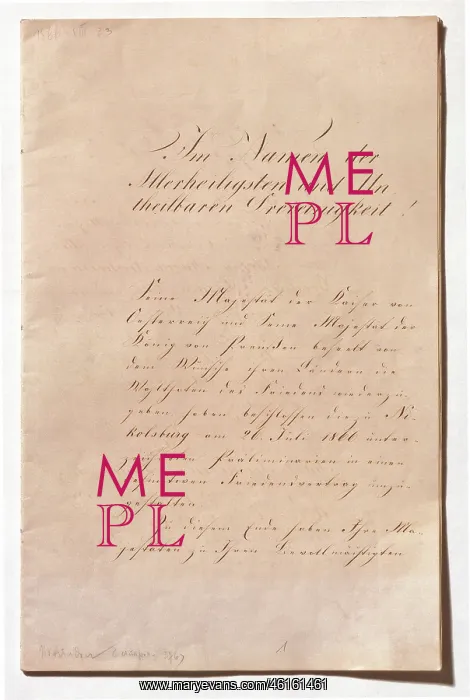 1866 VIII 23
Im Namen der
Allerheiligsten und Un
theilbaren Dreieinigkeit!
ME
PL
Seine Majestät der Kaiser von
Oesterreich und Seine Majestät der
König von Preußen beseelt von
dem Wunsche ihren Ländern die
Wohlthaten des Friedens wiederzu-
geben haben beschlossen die zu Ni-
kolsburg am 26. Juli 1866 unter-
Präliminarien in einen
Friedensvertrag umzu-
gestalten
ME
PL
Zu diesem Ende haben Ihre Ma-
jestäten zu Ihren Bevollmächtigten
1
www.maryevans.com/46161461